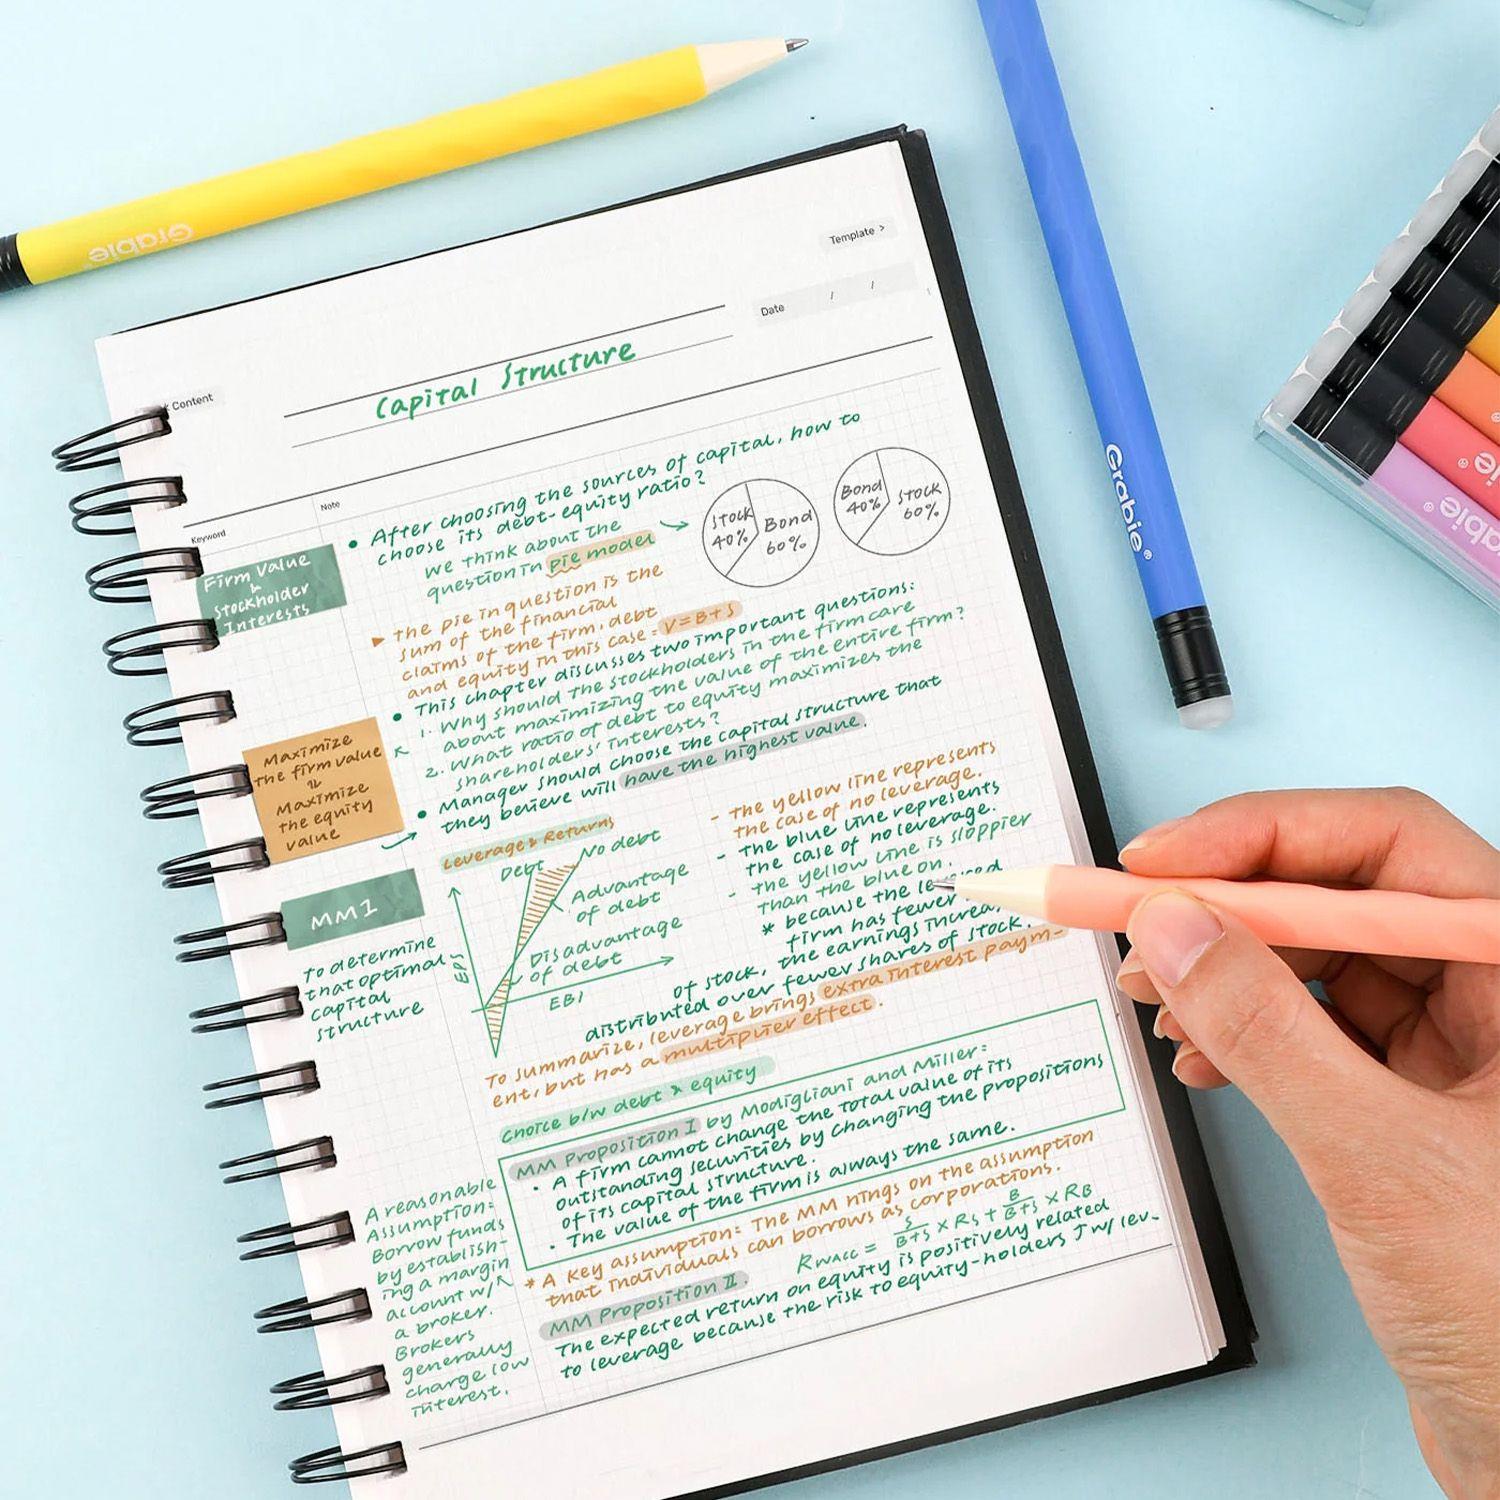 Grabie
Template >
Date / /
Content
Capital Structure
Keyword
Note
Firm Value
&
Stockholder
Interests
• After choosing the sources of capital, how to
choose its debt-equity ratio?
we think about the
question in pie model
Stock
40%
Bond
60%
Bond
40%
Stock
60%
the pie in question is the
sum of the financial
claims of the firm, debt
and equity in this case = V=B+S
• This chapter discusses two important questions:
1. Why should the stockholders in the firm care
about maximizing the value of the entire firm?
2. What ratio of debt to equity maximizes the
shareholders' interests?
• Manager should choose the capital structure that
they believe will have the highest value.
Maximize
the firm value
Maximize
the equity
value
Leverage & Returns
Debt
No debt
Advantage
of debt
Disadvantage
of debt
EPS
EBI
- the yellow line represents
the case of no leverage.
- the blue line represents
the case of no leverage.
- the yellow line is sloppier
than the blue on.
* because the
firm has fewer
of stock, the earnings
distributed over fewer shares of stock.
To summarize, leverage brings extra interest paym-
ent, but has a multiplier effect.
MM1
to determine
that optimal
capital
structure
Choice b/w debt & equity
MM Proposition I by Modigliani and Miller:
• A firm cannot change the total value of its
outstanding securities by changing the propositions
of its capital structure.
• The value of the firm is always the same.
* A key assumption: The MM hings on the assumption
that individuals can borrows as corporations.
RWACC = S/B+S × RS + B/B+S × RB
MM Proposition II.
The expected return on equity is positively related
to leverage because the risk to equity-holders ↑ w/ lev.
A reasonable
Assumption:
Borrow funds
by establish-
ing a margin
account w/
a broker.
Brokers
generally
charge low
interest.
Grabie®